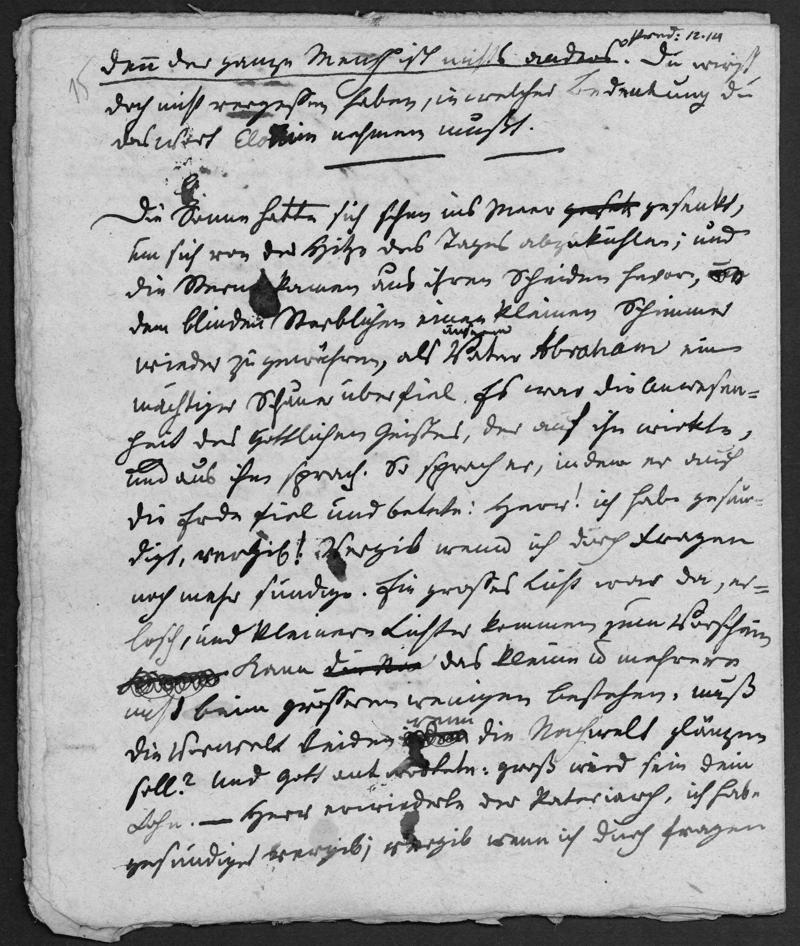 Pred: 12.14
15 denn der ganze Mensch ist nichts anders. Du wirst
doch nicht vergessen haben, in welcher Bedeutung du
das Wort Elohim nehmen mußt.
Die Sonne hatte sich schon ins Meer gesenkt,
um sich von der Hitze des Tages abzukühlen; und
die Sterne kamen aus ihren Scheiden hervor,
dem blinden Sterblichen einen kleinen Schimmer
wieder zu gewähren, als unsern Vater Abraham ein
mächtiger Schauer überfiel. Es war die Anwesen=
heit des Göttlichen Geistes, der auf ihn wirkte,
und aus ihm sprach. So sprach er, indem er auf
die Erde fiel und betete: Herr! ich habe gesün=
digt, vergib! Vergib wenn ich durch Fragen
noch mehr sündige. Ein grosses Licht war da, er=
losch, und kleinere Lichter kommen zum Vorschein
Kann das kleine u mehrere
nicht beim grösseren wenigen bestehen, muß
die Vorwelt leiden wenn die Nachwelt glänzen
soll? Und Gott antwortete: groß wird sein dein
Lohn. — Herr erwiederte der Patriarch, ich habe
gesündiget vergib; vergib wenn ich durch fragen